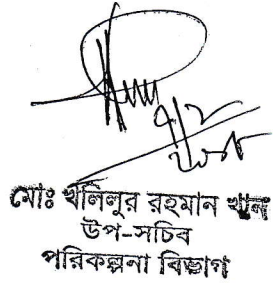 মোঃ খলিলুর রহমান খান
উপ-সচিব
পরিকল্পনা বিভাগ